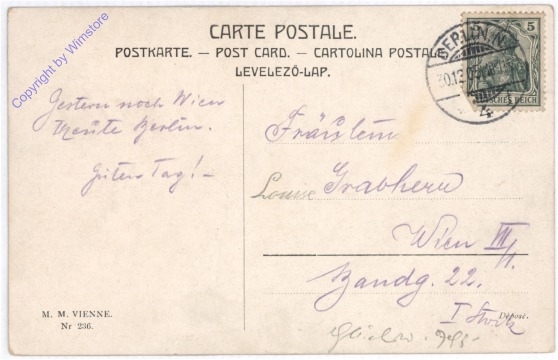 CARTE POSTALE.
POSTKARTE. — POST CARD. — CARTOLINA POSTAL
LEVELEZŐ-LAP.
Copyright by Wimstore
BERLIN N.
5
DEUTSCHES REICH
Gestern noch Wien
Heute Berlin.
Guten Tag! —
Fräulein
Louise Grabherr
Wien III/1.
Bandg. 22.
I Stock
M. M. VIENNE.
Nr 236.
Déposé.